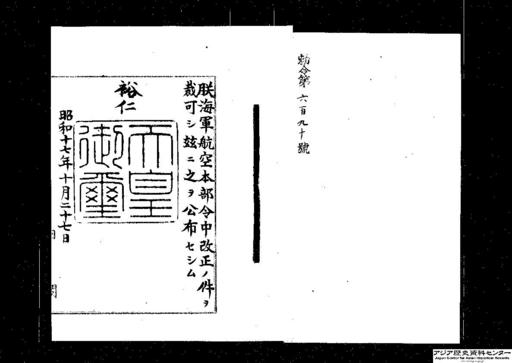 勅令第六百九十號
朕海軍航空本部令中改正ノ件ヲ
裁可シ玆ニ之ヲ公布セシム
裕仁
天皇
御璽
昭和十七年十月二十七日
アジア歴史資料センター
Japan Center for Asian Historical Records